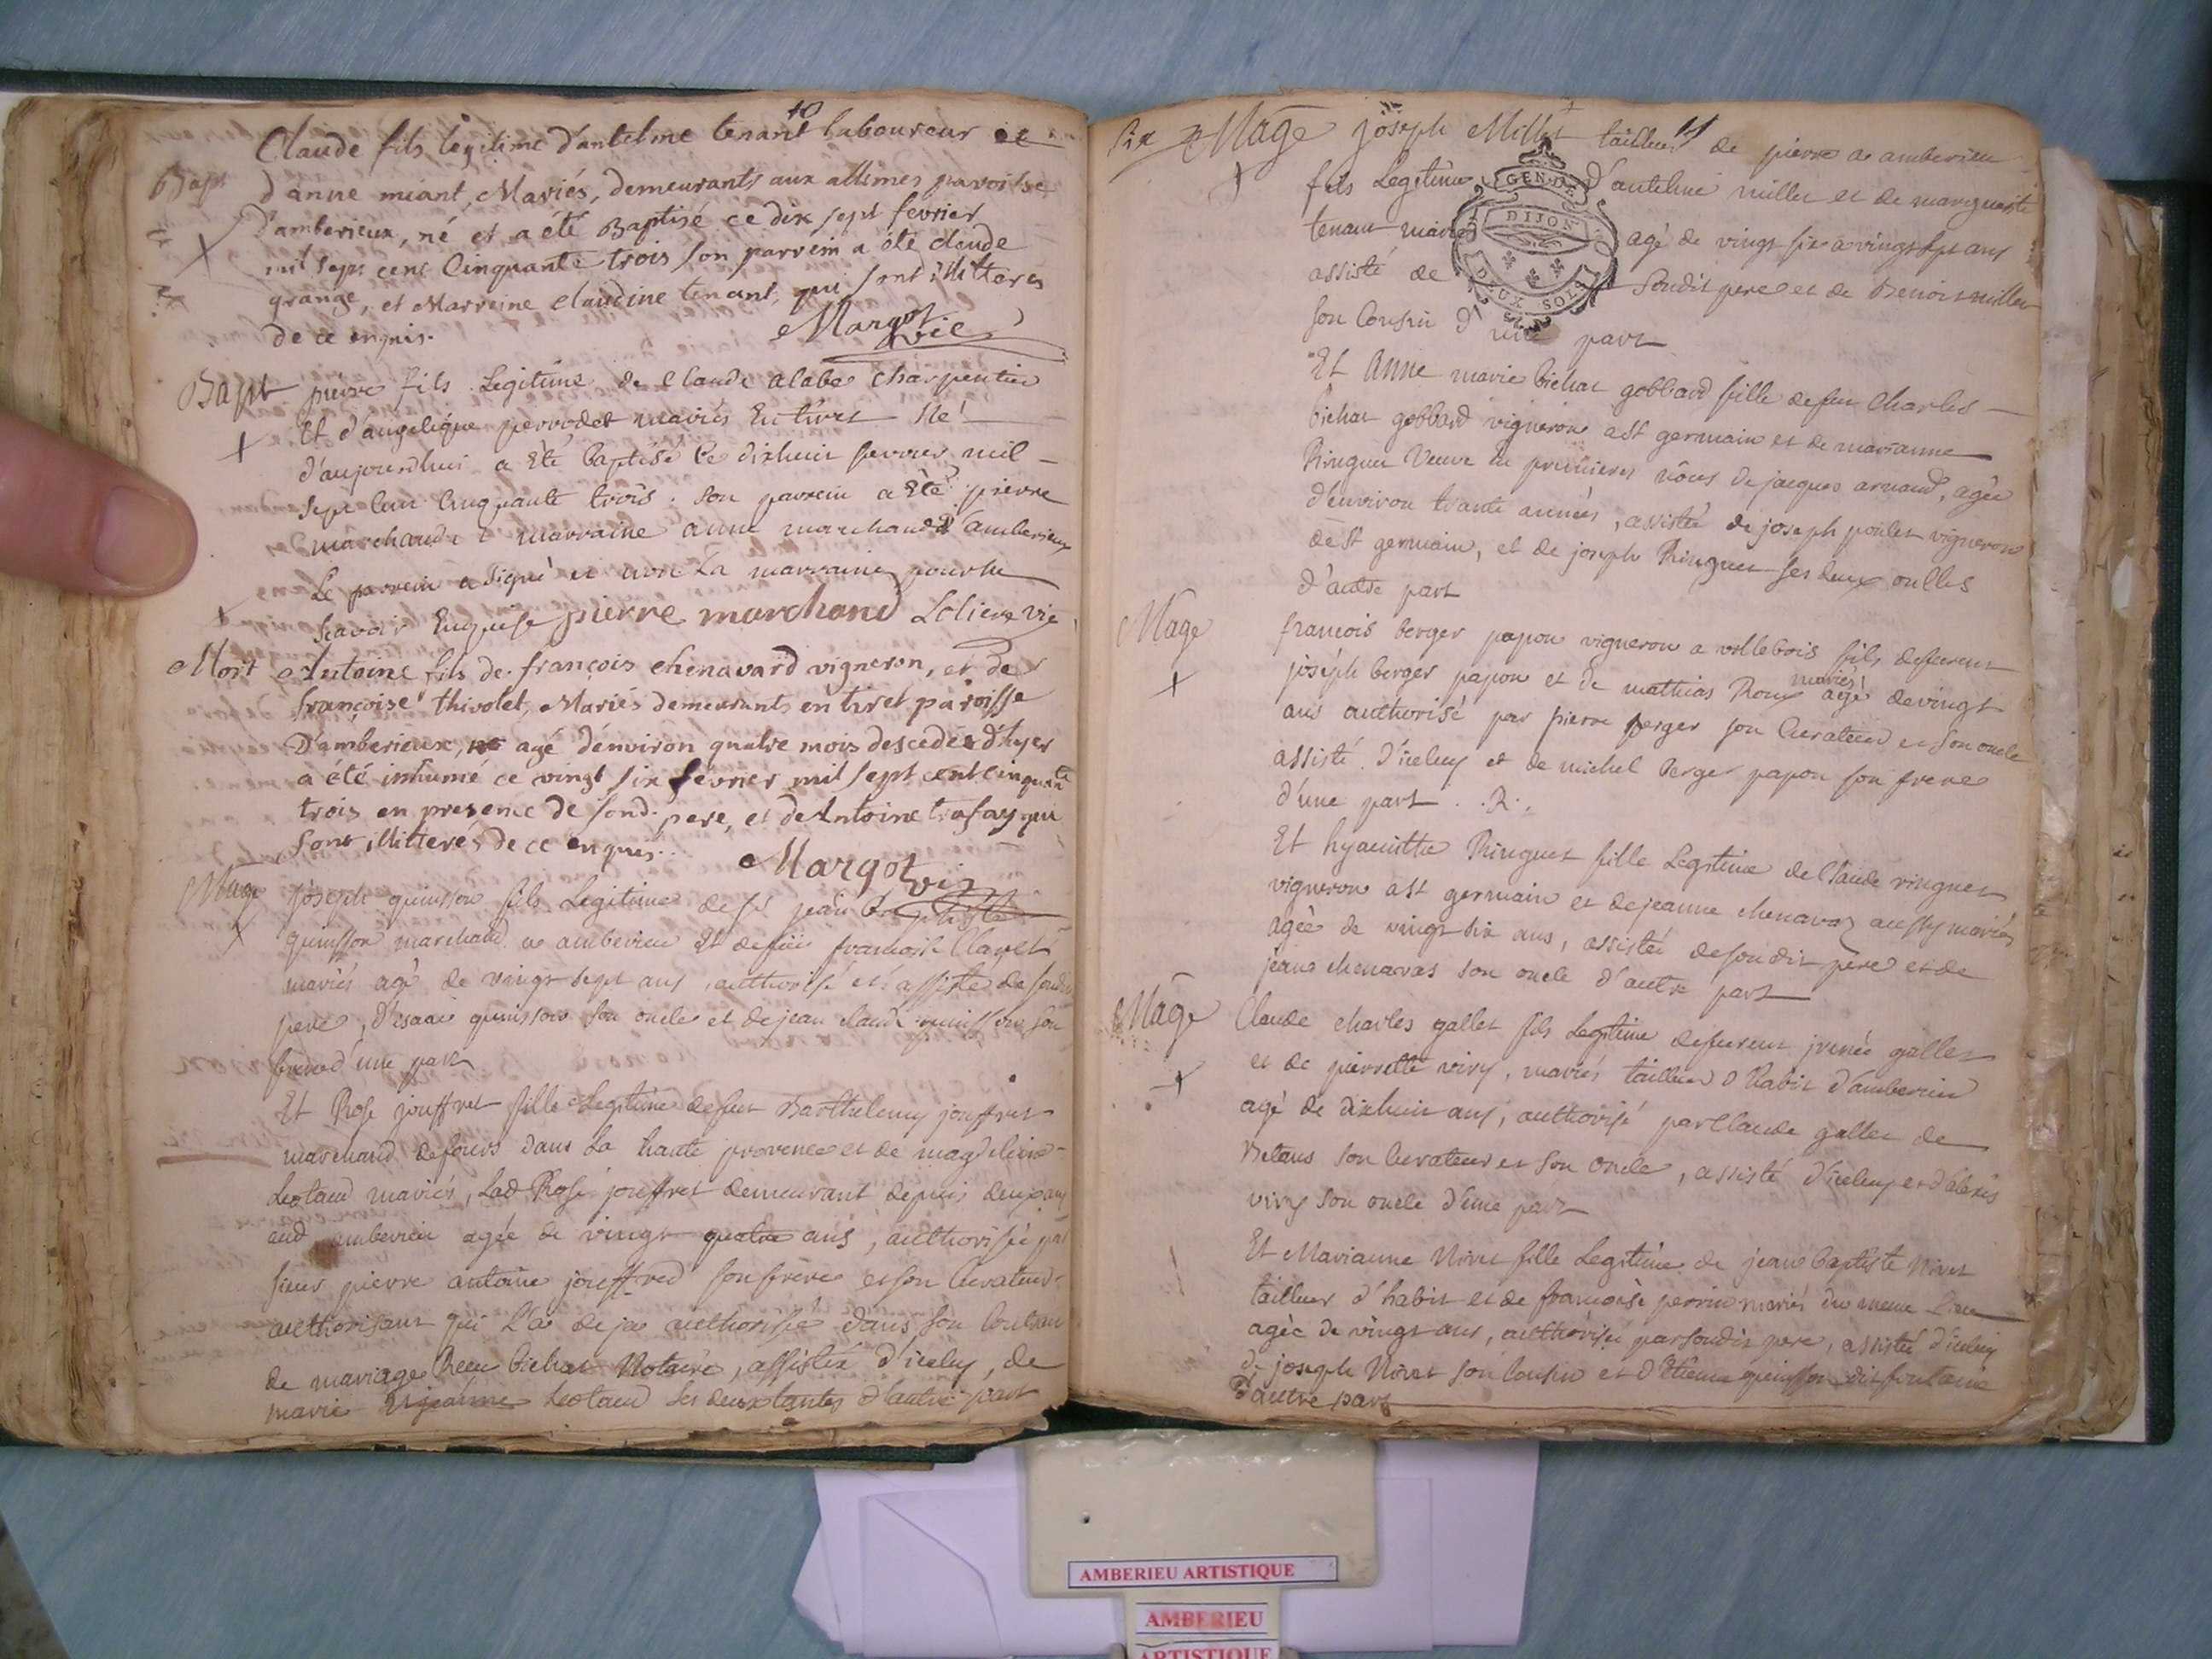 10
Claude fils legitime d'antelme tenant laboureur et
Bapt d'anne miant, Mariés, demeurants aux allimes paroisse
D'amberieux, né et a été Baptisé ce dix sept fevrier
mil sept cent Cinquante trois son parrein a été claude
grange, et Marreine claudine tenant, qui sont illitteres
de ce enquis. Margot vic
Bapt pierre fils Legitime de Claude alabe charpentier
Et d'angelique perrodet mariés En tiret Né
d'aujourdhui a Eté baptisé Ce dixhuit fevrier mil
sept Cen Cinquante trois. son parrein a Eté pierre
marchand et marraine anne marchand d'amberieux
Le parrein a signé et non La marraine pour ne
scavoir Enquise pierre marchand vic
Mort Antoine fils de françois chenavard vigneron, et de
françoise thivolet, Mariés demeurants en tiret paroisse
D'amberieux, agé d'environ quatre mois descedé d'hyer
a été inhumé ce vingt six fevrier mil sept cent cinquante
trois en presence de sond. pere, et de Antoine trafay qui
sont illitterés de ce enquis. Margot vic
Mage joseph quinson fils Legitime de jean Baptiste
quinson marchand a amberieu Et de françoise Claret
mariés agé de vingt sept ans, authorisé et assisté de sondit
pere, d'isaac quinson son oncle et de jean claude quinson son
frere d'une part
Et Rose jouffret fille Legitime defeu Barthelemy jouffret
marchand de fours dans la haute provence et de magdeleine
Leotaud mariés, Lad Rose jouffret demeurant depuis deux ans
aud amberieu agée de vingt quatre ans, authorisée par
sieur pierre antoine jouffred son frere et son Curateur
authorisant qui L'a deja authorisée dans son Contrat
de mariage Reçu bichat Notaire, assistée d'iceluy, de
marie Leotaud ses deux tantes d'autre part
11
Mage joseph Millet tailleur de pierre a amberieu
fils Legitime d'antelme millet et de marguerite
tenant mariés agé de vingt six a vingt sept ans
assisté de sondit pere et de Benoit millet
son Cousin d'une part
GEN. DE
DIJON
DEUX SOLS
Et Anne marie bichat gobbard fille defeu Charles
bichat gobbard vigneron a st germain et de marianne
Ringuet Veuve en premieres nôces de jacques arnaud, agée
d'environ trante années, assistée de joseph poulet vigneron
de st germain, et de joseph Ringuet ses deux oncles
d'autre part
Mage francois berger papon vigneron a villebois fils defeu
joseph berger papon et de mathias Roux mariés agé devingt
ans authorisé par pierre berger son Curateur et son oncle
assisté d'iceluy et de michel berger papon son frere
d'une part
Et hyacinthe Ringuet fille Legitime de Claude ringuet
vigneron a st germain et dejeanne chenavaz aussy mariés
agée de vingt six ans, assistée desondit pere et de
jean chenavas son oncle d'autre part
Mage Claude charles gallet fils Legitime defeu jrenée gallet
et de pierrette viry, mariés tailleur d'habit d'amberieu
agé de dixhuit ans, authorisé par Claude gallet de
Betans son Curateur et son oncle, assisté d'iceluy et d'alexis
viry son oncle d'une part
Et Marianne Nivet fille Legitime de jean baptiste Nivet
tailleur d'habit et de francoise perrin mariés du meme Lieu
agée de vingt ans, authorisée parsondit pere, assistée d'iceluy
de joseph Nivet son Cousin et d'Etienne quinson dit fontaine
d'autre part
AMBERIEU ARTISTIQUE
AMBERIEU
ARTISTIQUE